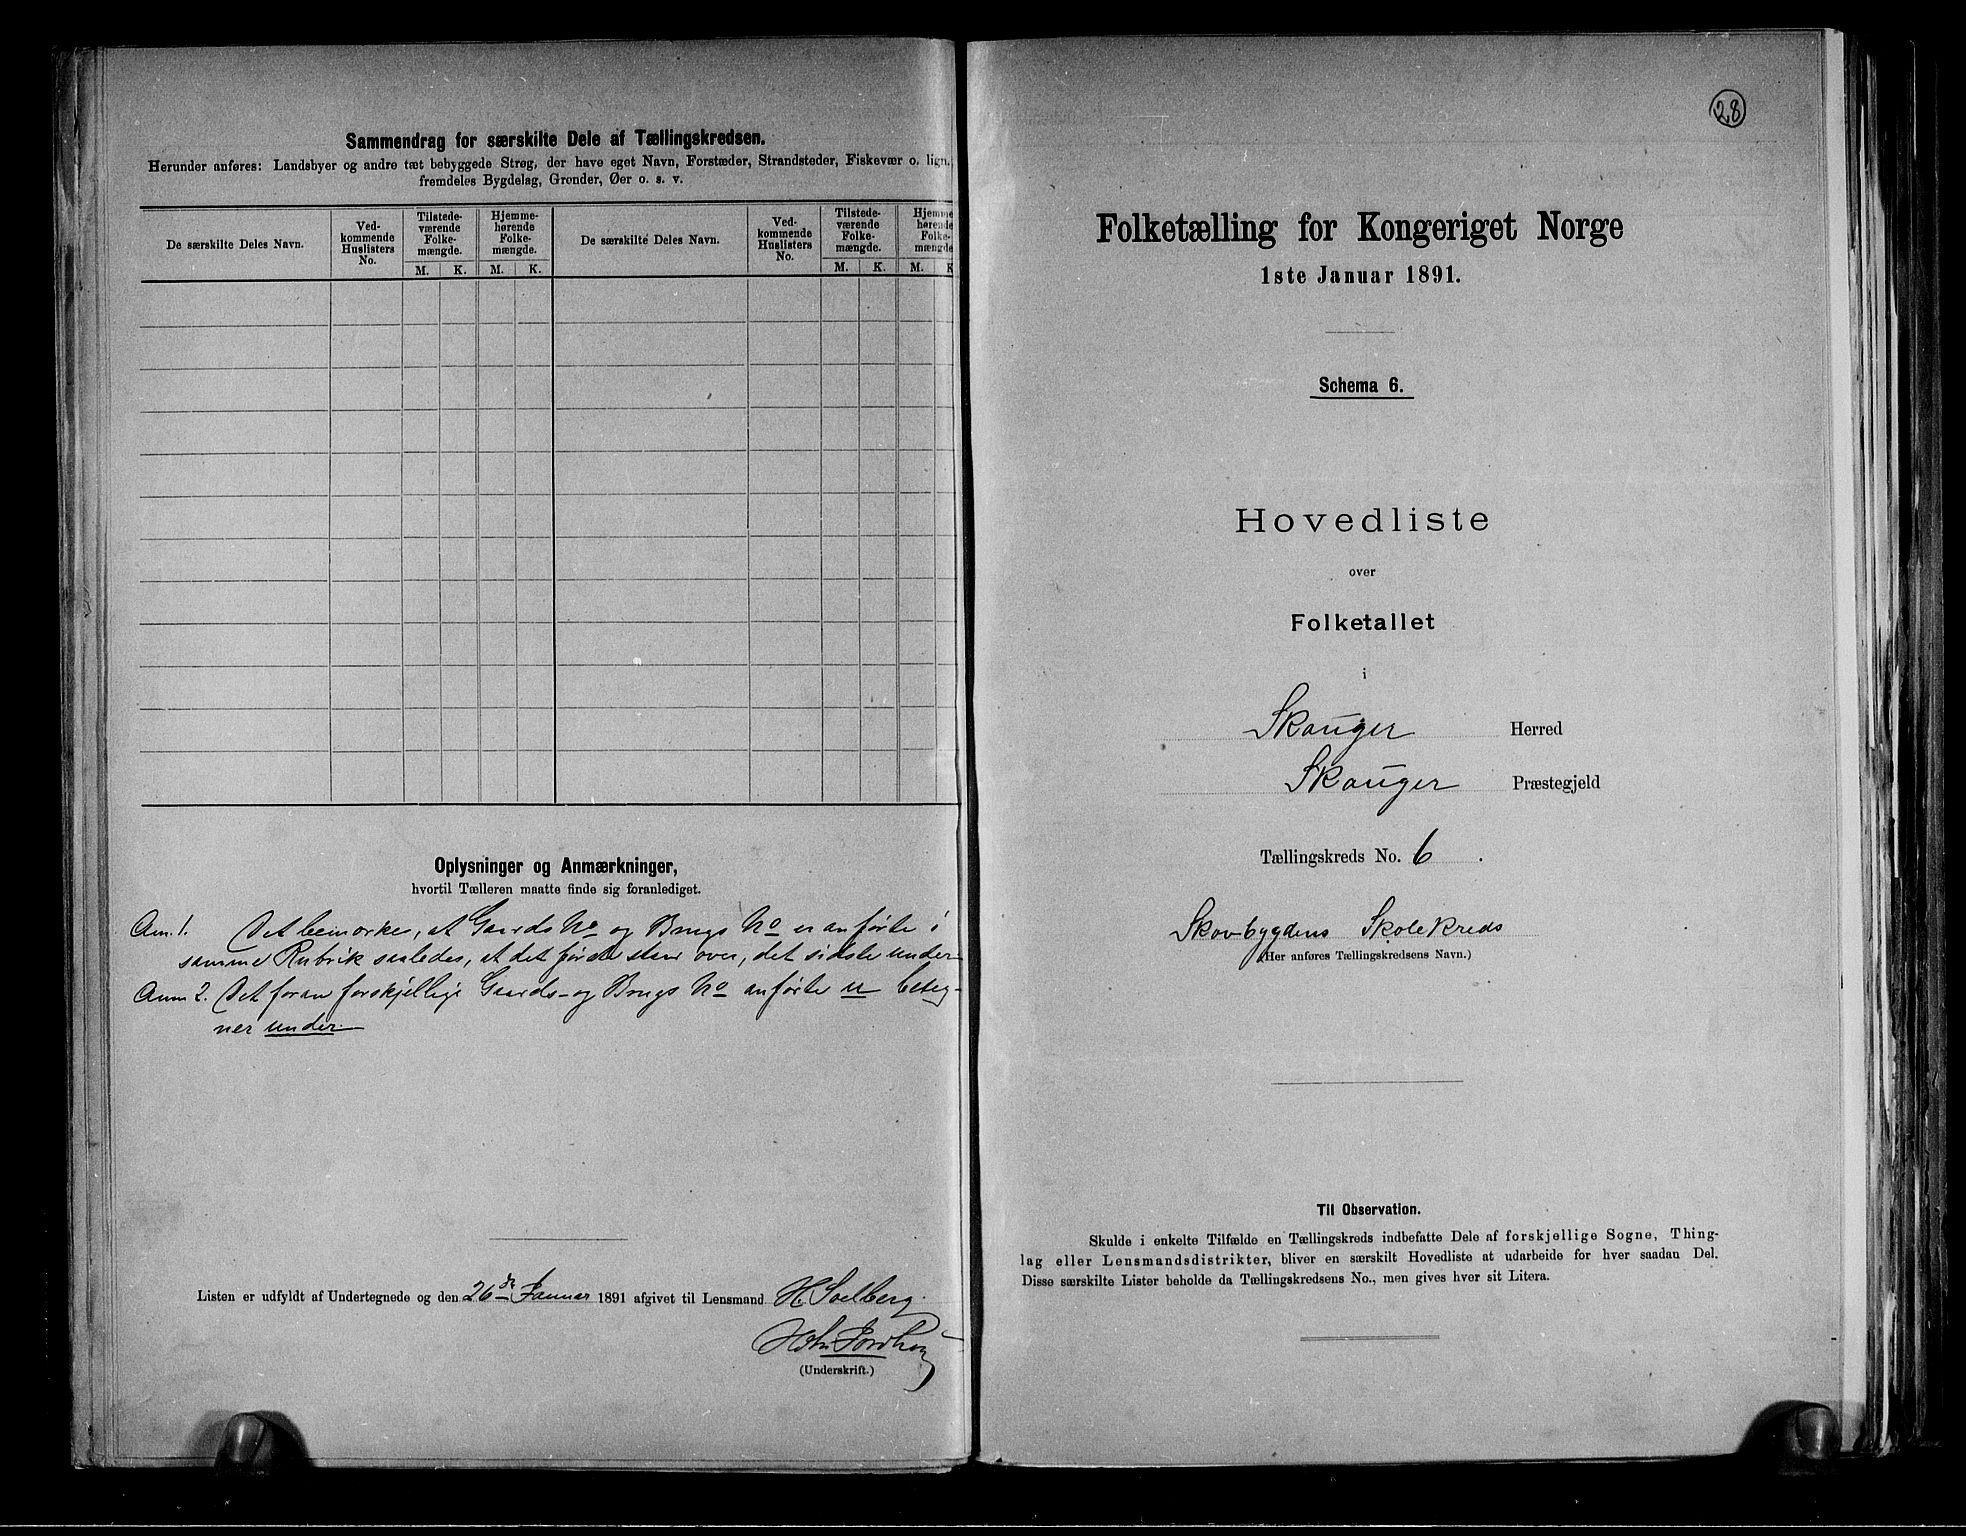 Sammendrag for særskilte Dele af Tællingskredsen.
Herunder anføres: Landsbyer og andre tæt bebyggede Strøg, der have eget Navn, Forstæder, Strandsteder, Fiskevær o. lign.
fremdeles Bygdelag, Grender, Øer o. s. v.
De særskilte Deles Navn.
Ved-
kommende
Huslisters
No.
Tilstede-
værende
Folke-
mængde.
M. K.
Hjemme-
hørende
Folke-
mængde.
M. K.
De særskilte Deles Navn.
Ved-
kommende
Huslisters
No.
Tilstede-
værende
Folke-
mængde.
M. K.
Hjemme
hørende
Folke-
mængde
M. K
Oplysninger og Anmærkninger,
hvortil Tælleren maatte finde sig foranlediget.
Anm. 1. Det bemærkes, at Gaards No og Brugs No er anførte i
samme Rubrik saaledes, at det første staar over, det sidste under
Anm 2. Det foran forskjellige Gaards- og Brugs No anførte u beteg-
ner under.
Listen er udfyldt af Undertegnede og den 26de Januar 1891 afgivet til Lensmand H. Solberg.
(Underskrift.)
28
Folketælling for Kongeriget Norge
1ste Januar 1891.
Schema 6.
Hovedliste
over
Folketallet
i
Skouger Herred
Skouger Præstegjeld
Tællingskreds No. 6.
Skovbygdens Skolekreds
(Her anføres Tællingskredsens Navn.)
Til Observation.
Skulde i enkelte Tilfælde en Tællingskreds indbefatte Dele af forskjellige Sogne, Thing-
lag eller Lensmandsdistrikter, bliver en særskilt Hovedliste at udarbeide for hver saadan Del.
Disse særskilte Lister beholde da Tællingskredsens No., men gives hver sit Litera.